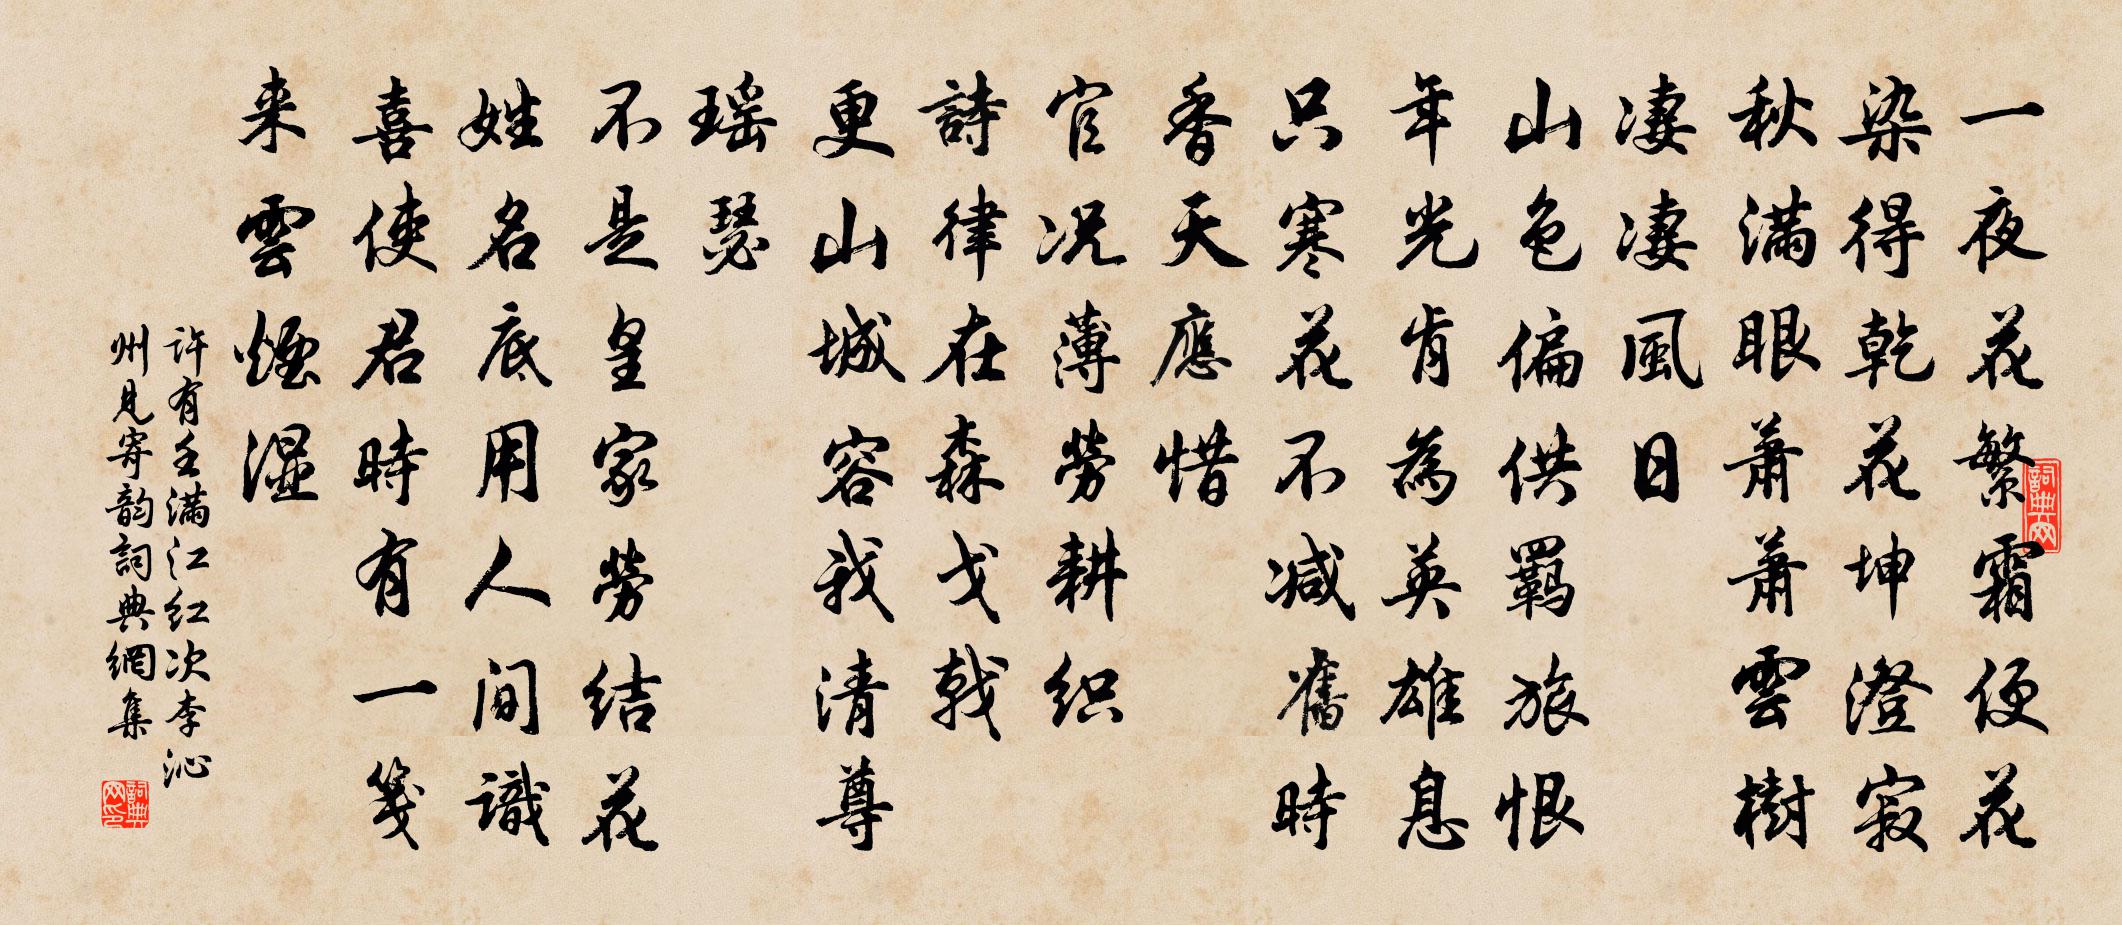 一夜花繁霜便花
染得乾花坤澄寂
秋满眼萧萧雲樹
凄凄風日
山色偏供羁旅恨
年光肯為英雄息
只寒花不减舊時
香天應惜
官况薄勞耕织
詩律在森戈戟
更山城容我清尊
瑶瑟
不是皇家勞结花
姓名底用人间識
喜使君時有一笺
来雲煙湿
許有壬满江红次李沁
州見寄韵詞典網集
詞典网
詞典网印